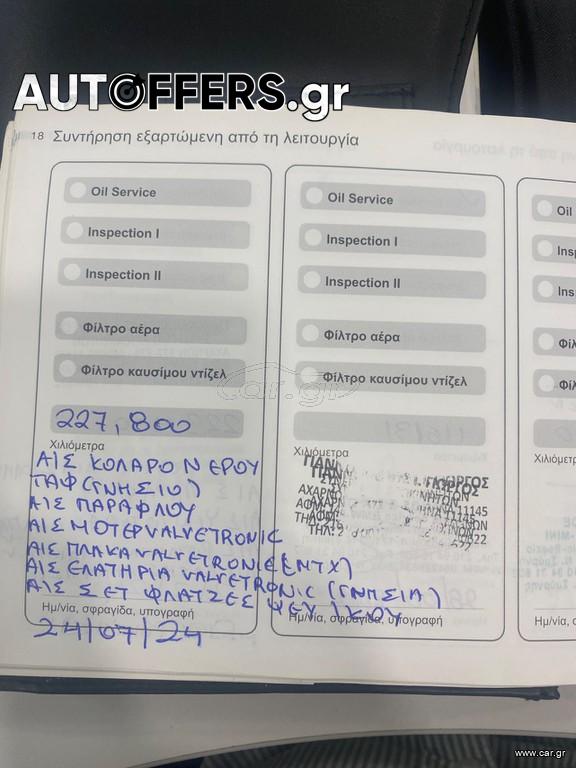 AUTOFFERS.gr
18 Συντήρηση εξαρτώμενη από τη λειτουργία
Oil Service
Inspection I
Inspection II
Φίλτρο αέρα
Φίλτρο καυσίμου ντίζελ
227,800
Χιλιόμετρα
ΑΙΣ ΚΟΛΑΡΟ ΝΕΡΟΥ
ΤΑΦ (ΓΝΗΣΙΟ)
ΑΙΣ ΠΑΡΑΦΛΟΥ
ΑΙΣ ΜΟΤΕΡ VALVETRONIC
ΑΙΣ ΠΛΑΚΑ VALVETRONIC (ΕΝΤΧ)
ΑΙΣ ΕΛΑΤΗΡΙΑ VALVETRONIC (ΓΝΗΣΙΑ)
ΑΙΣ ΣΕΤ ΦΛΑΤΖΕΣ
Ημ/νία, σφραγίδα, υπογραφή
24/07/24
Oil Service
Inspection I
Inspection II
Φίλτρο αέρα
Φίλτρο καυσίμου ντίζελ
Χιλιόμετρα
Ημ/νία, σφραγίδα, υπογραφή
Oil
Insp
Ins
Φίλ
Φίλ
Χιλιόμετρ
Ημ/νία, σ
car.gr
www.car.gr